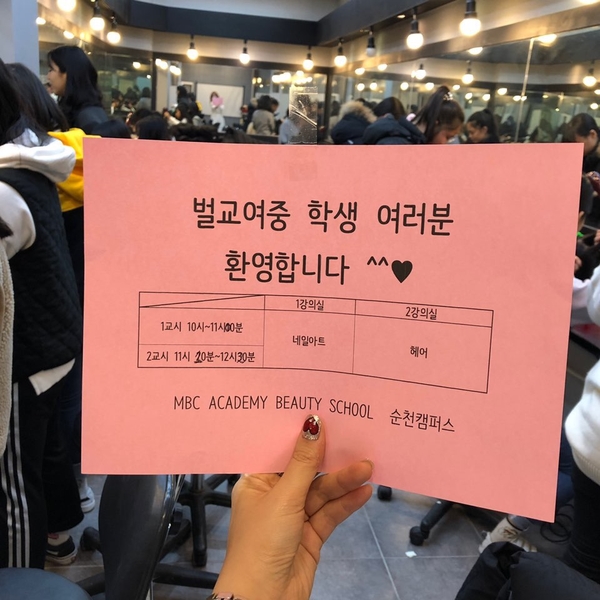 벌교여중 학생 여러분
환영합니다 ^^♥
1강의실 2강의실
1교시 10시~11시00분
네일아트 헤어
2교시 11시 20분~12시30분
MBC ACADEMY BEAUTY SCHOOL 순천캠퍼스